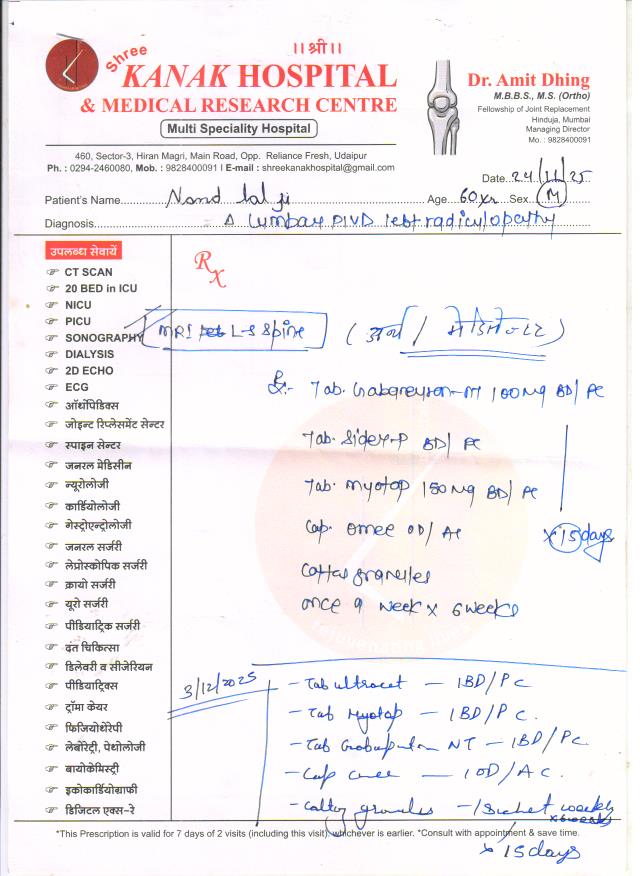 ।। श्री ।।
Shree
KANAK HOSPITAL
& MEDICAL RESEARCH CENTRE
Multi Speciality Hospital
460, Sector-3, Hiran Magri, Main Road, Opp. Reliance Fresh, Udaipur
Ph. : 0294-2460080, Mob. : 9828400091 | E-mail : shreekanakhospital@gmail.com
Dr. Amit Dhing
M.B.B.S., M.S. (Ortho)
Fellowship of Joint Replacement
Hinduja, Mumbai
Managing Director
Mo. : 9828400091
Date 24/11/25
Patient's Name Nand lal ji Age 60 yr Sex M
Diagnosis Δ Lumbar PIVD left radiculopathy
उपलब्ध सेवायें
CT SCAN
20 BED in ICU
NICU
PICU
SONOGRAPHY
DIALYSIS
2D ECHO
ECG
ऑर्थोपेडिक्स
जोइन्ट रिप्लेसमेंट सेन्टर
स्पाइन सेन्टर
जनरल मेडिसीन
न्यूरोलोजी
कार्डियोलोजी
गेस्ट्रोएन्ट्रोलोजी
जनरल सर्जरी
लेप्रोस्कोपिक सर्जरी
क्रायो सर्जरी
यूरो सर्जरी
पीडियाट्रिक सर्जरी
दंत चिकित्सा
डिलेवरी व सीजेरियन
पीडियाट्रिक्स
ट्रॉमा केयर
फिजियोथेरेपी
लेबोरेट्री, पेथोलोजी
बायोकेमिस्ट्री
इकोकार्डियोग्राफी
डिजिटल एक्स-रे
Rx
MRI L-S Spine
Tab. 100mg BD/PC
Tab. BD/PC
Tab. Myotop 150mg BD/PC
Cap. Omee OD/AC
x 15 days
granules
once a week x 6 weeks
rejuvenating lives
3/12/2025
- Tab ultracet - 1BD/PC
- Tab Myotop - 1BD/PC.
- Tab NT - 1BD/PC.
- Cap omee - 1OD/AC.
- granules - 1 Sachet weekly
x 6 weeks
*This Prescription is valid for 7 days of 2 visits (including this visit), whichever is earlier. *Consult with appointment & save time.
x 15 days